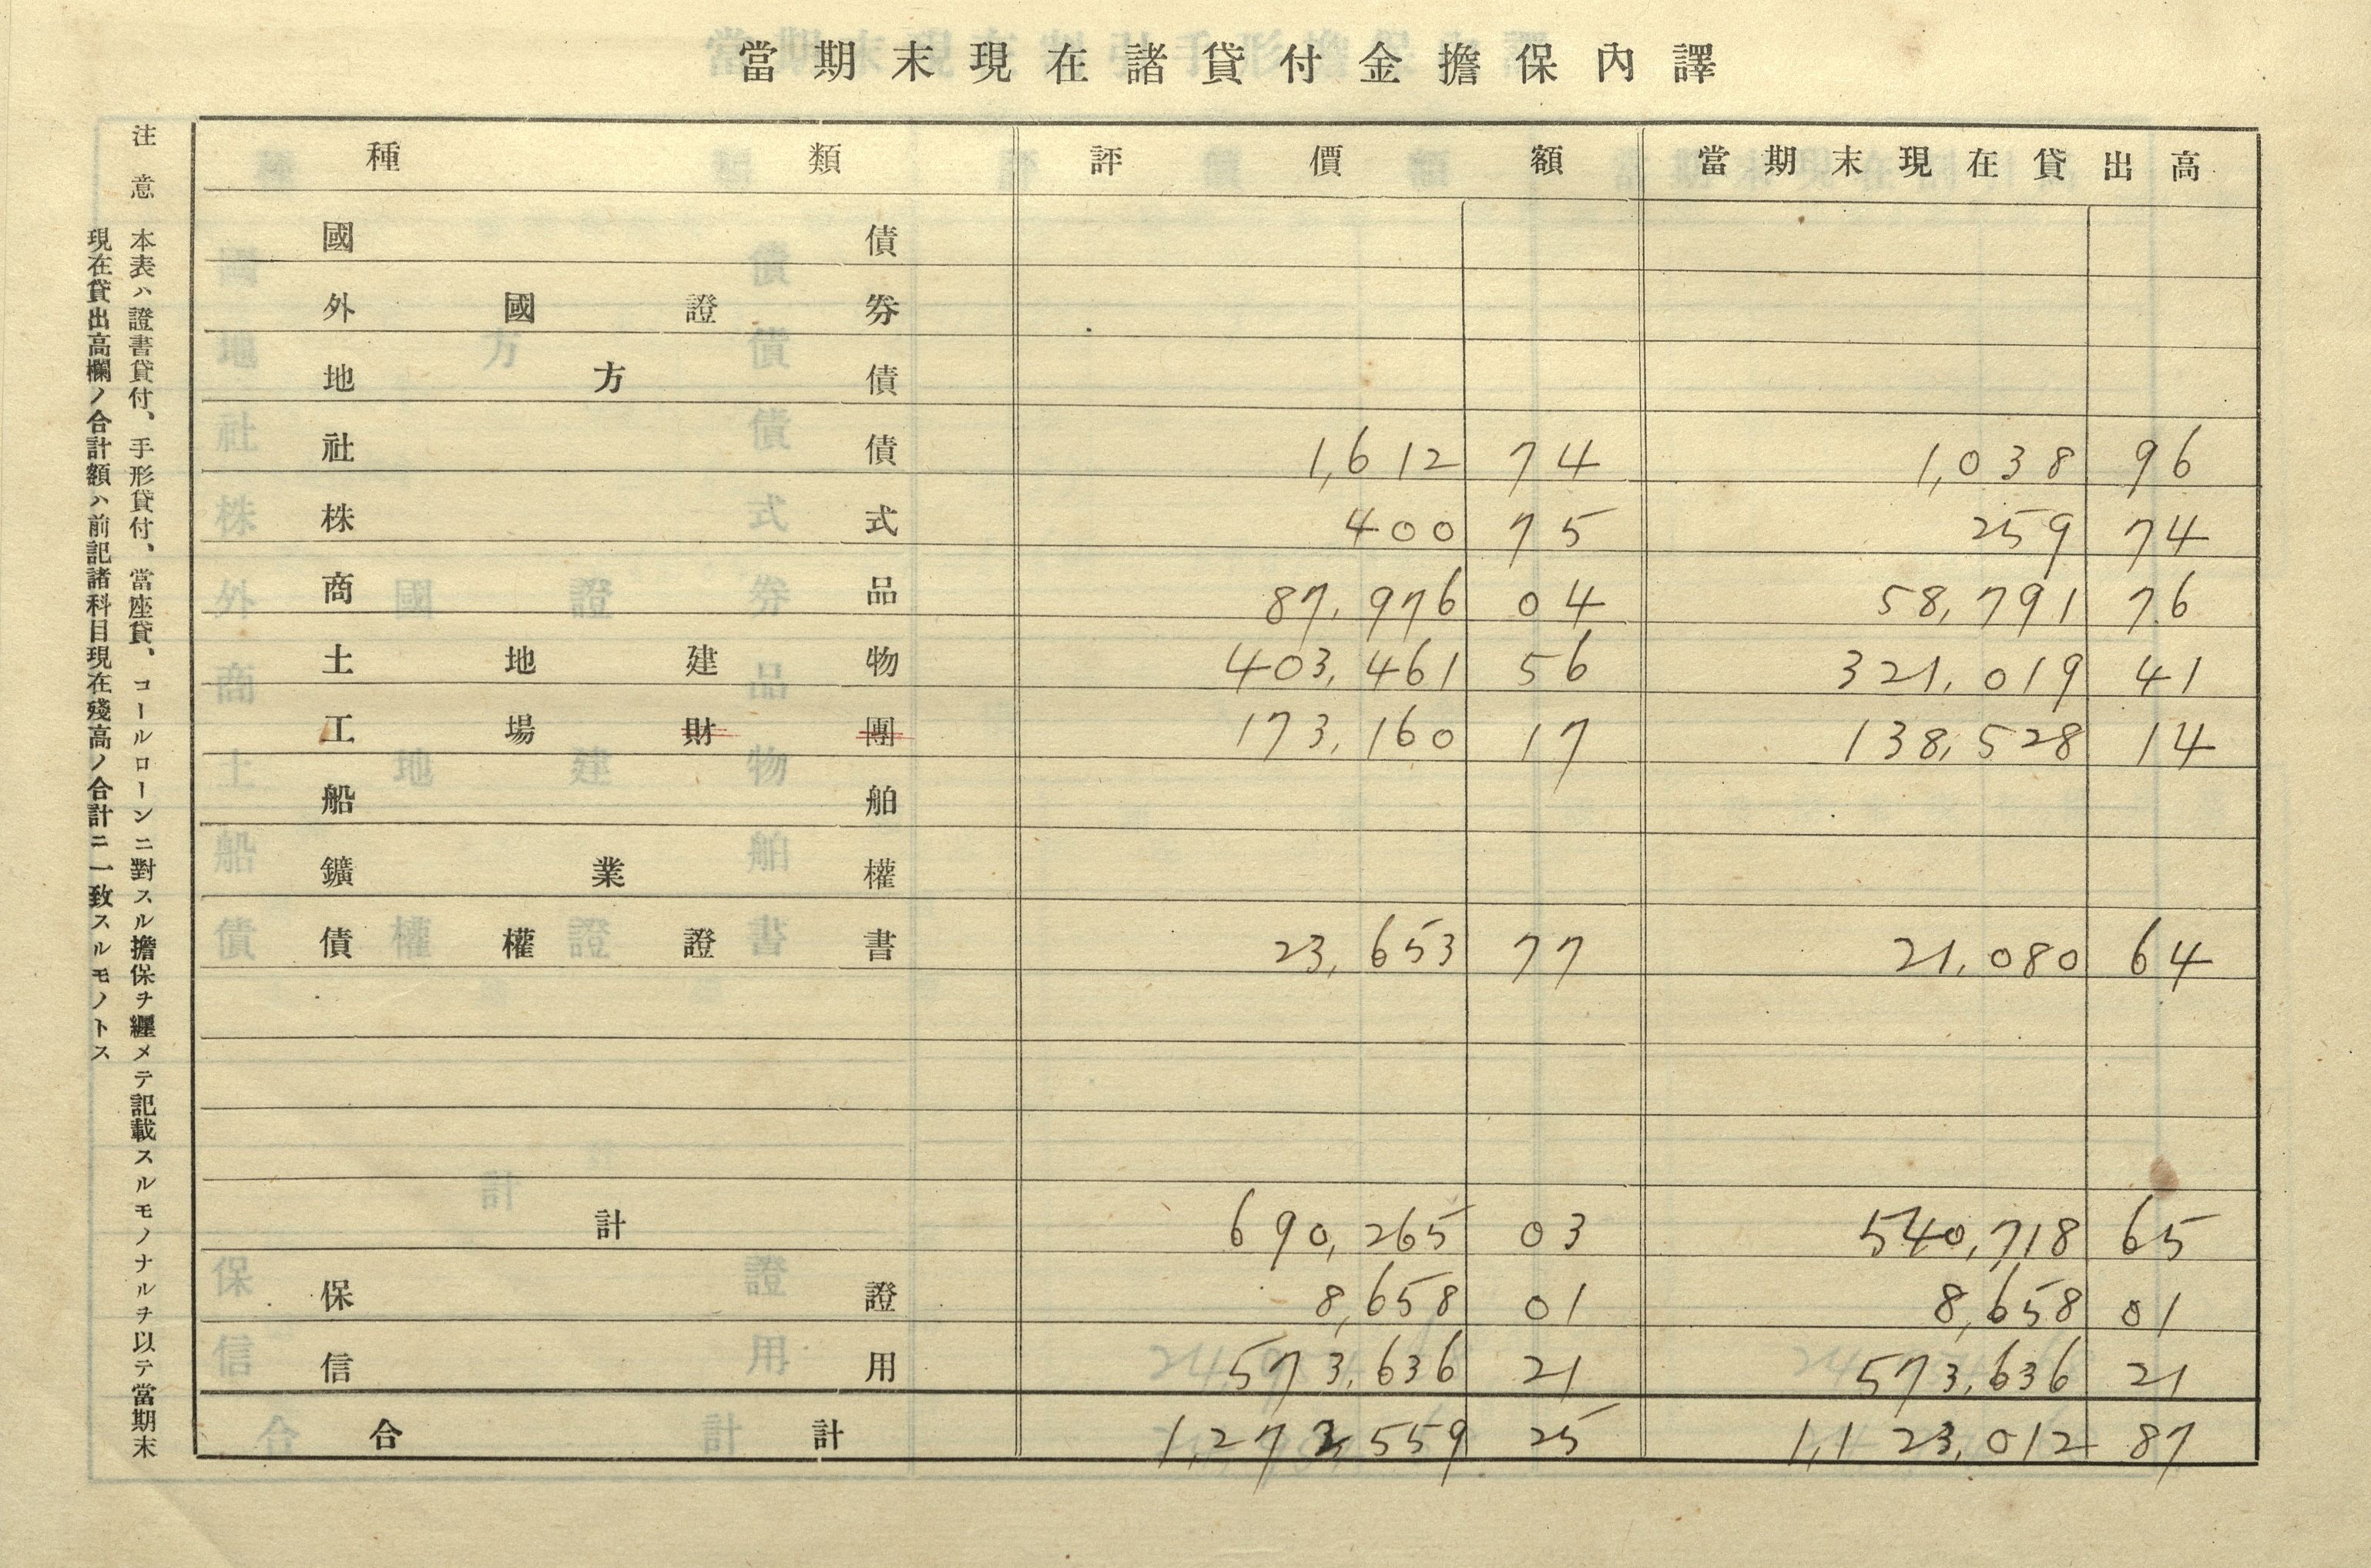 當期末現在諸貸付金擔保內譯
種類 評價額 當期末現在貸出高
國債
外國證券
地方債
社債 1,612 74 1,038 96
株式 400 75 259 74
商品 87,976 04 58,791 76
土地建物 403,461 56 321,019 41
工場財團 173,160 17 138,528 14
船舶
鑛業權
債權證書 23,653 77 21,080 64
計 690,265 03 540,718 65
保證 8,658 01 8,658 01
信用 573,636 21 573,636 21
合計 1,272,559 25 1,123,012 87
注意 本表ハ證書貸付、手形貸付、當座貸、コールローンニ對スル擔保ヲ纒メテ記載スルモノナルヲ以テ當期末
現在貸出高欄ノ合計額ハ前記諸科目現在殘高ノ合計ニ一致スルモノトス